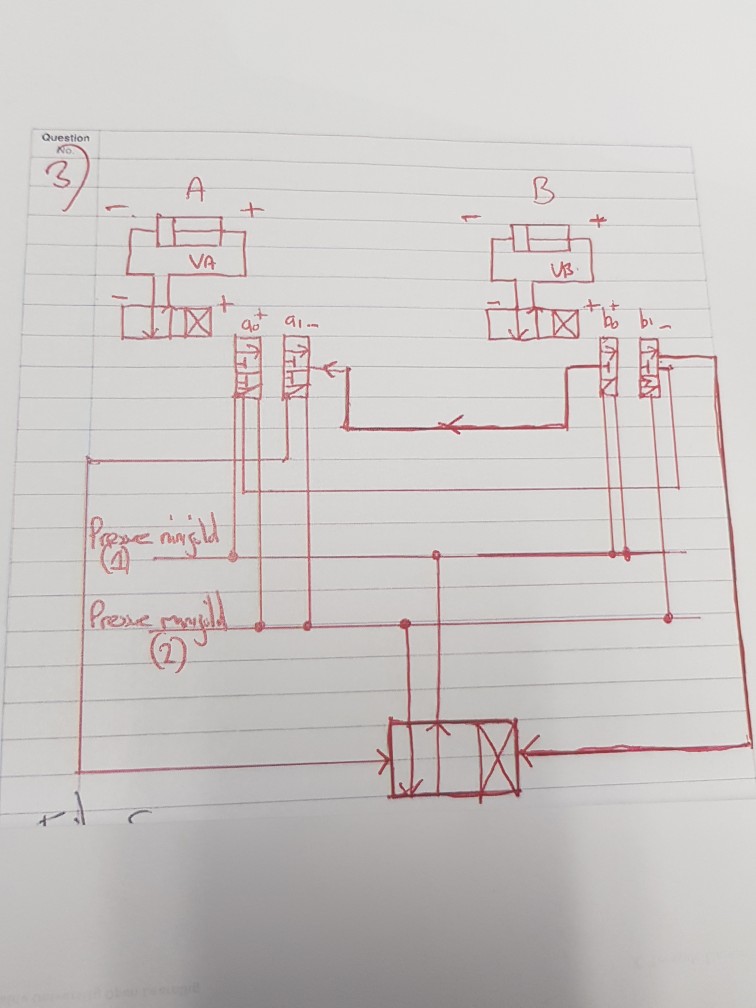 Question
No.
3)
A
B
- +
- +
VA
VB
- +
- +
a0 + a1 -
b0 + b1 -
Pressure manifold
(1)
Pressure manifold
(2)